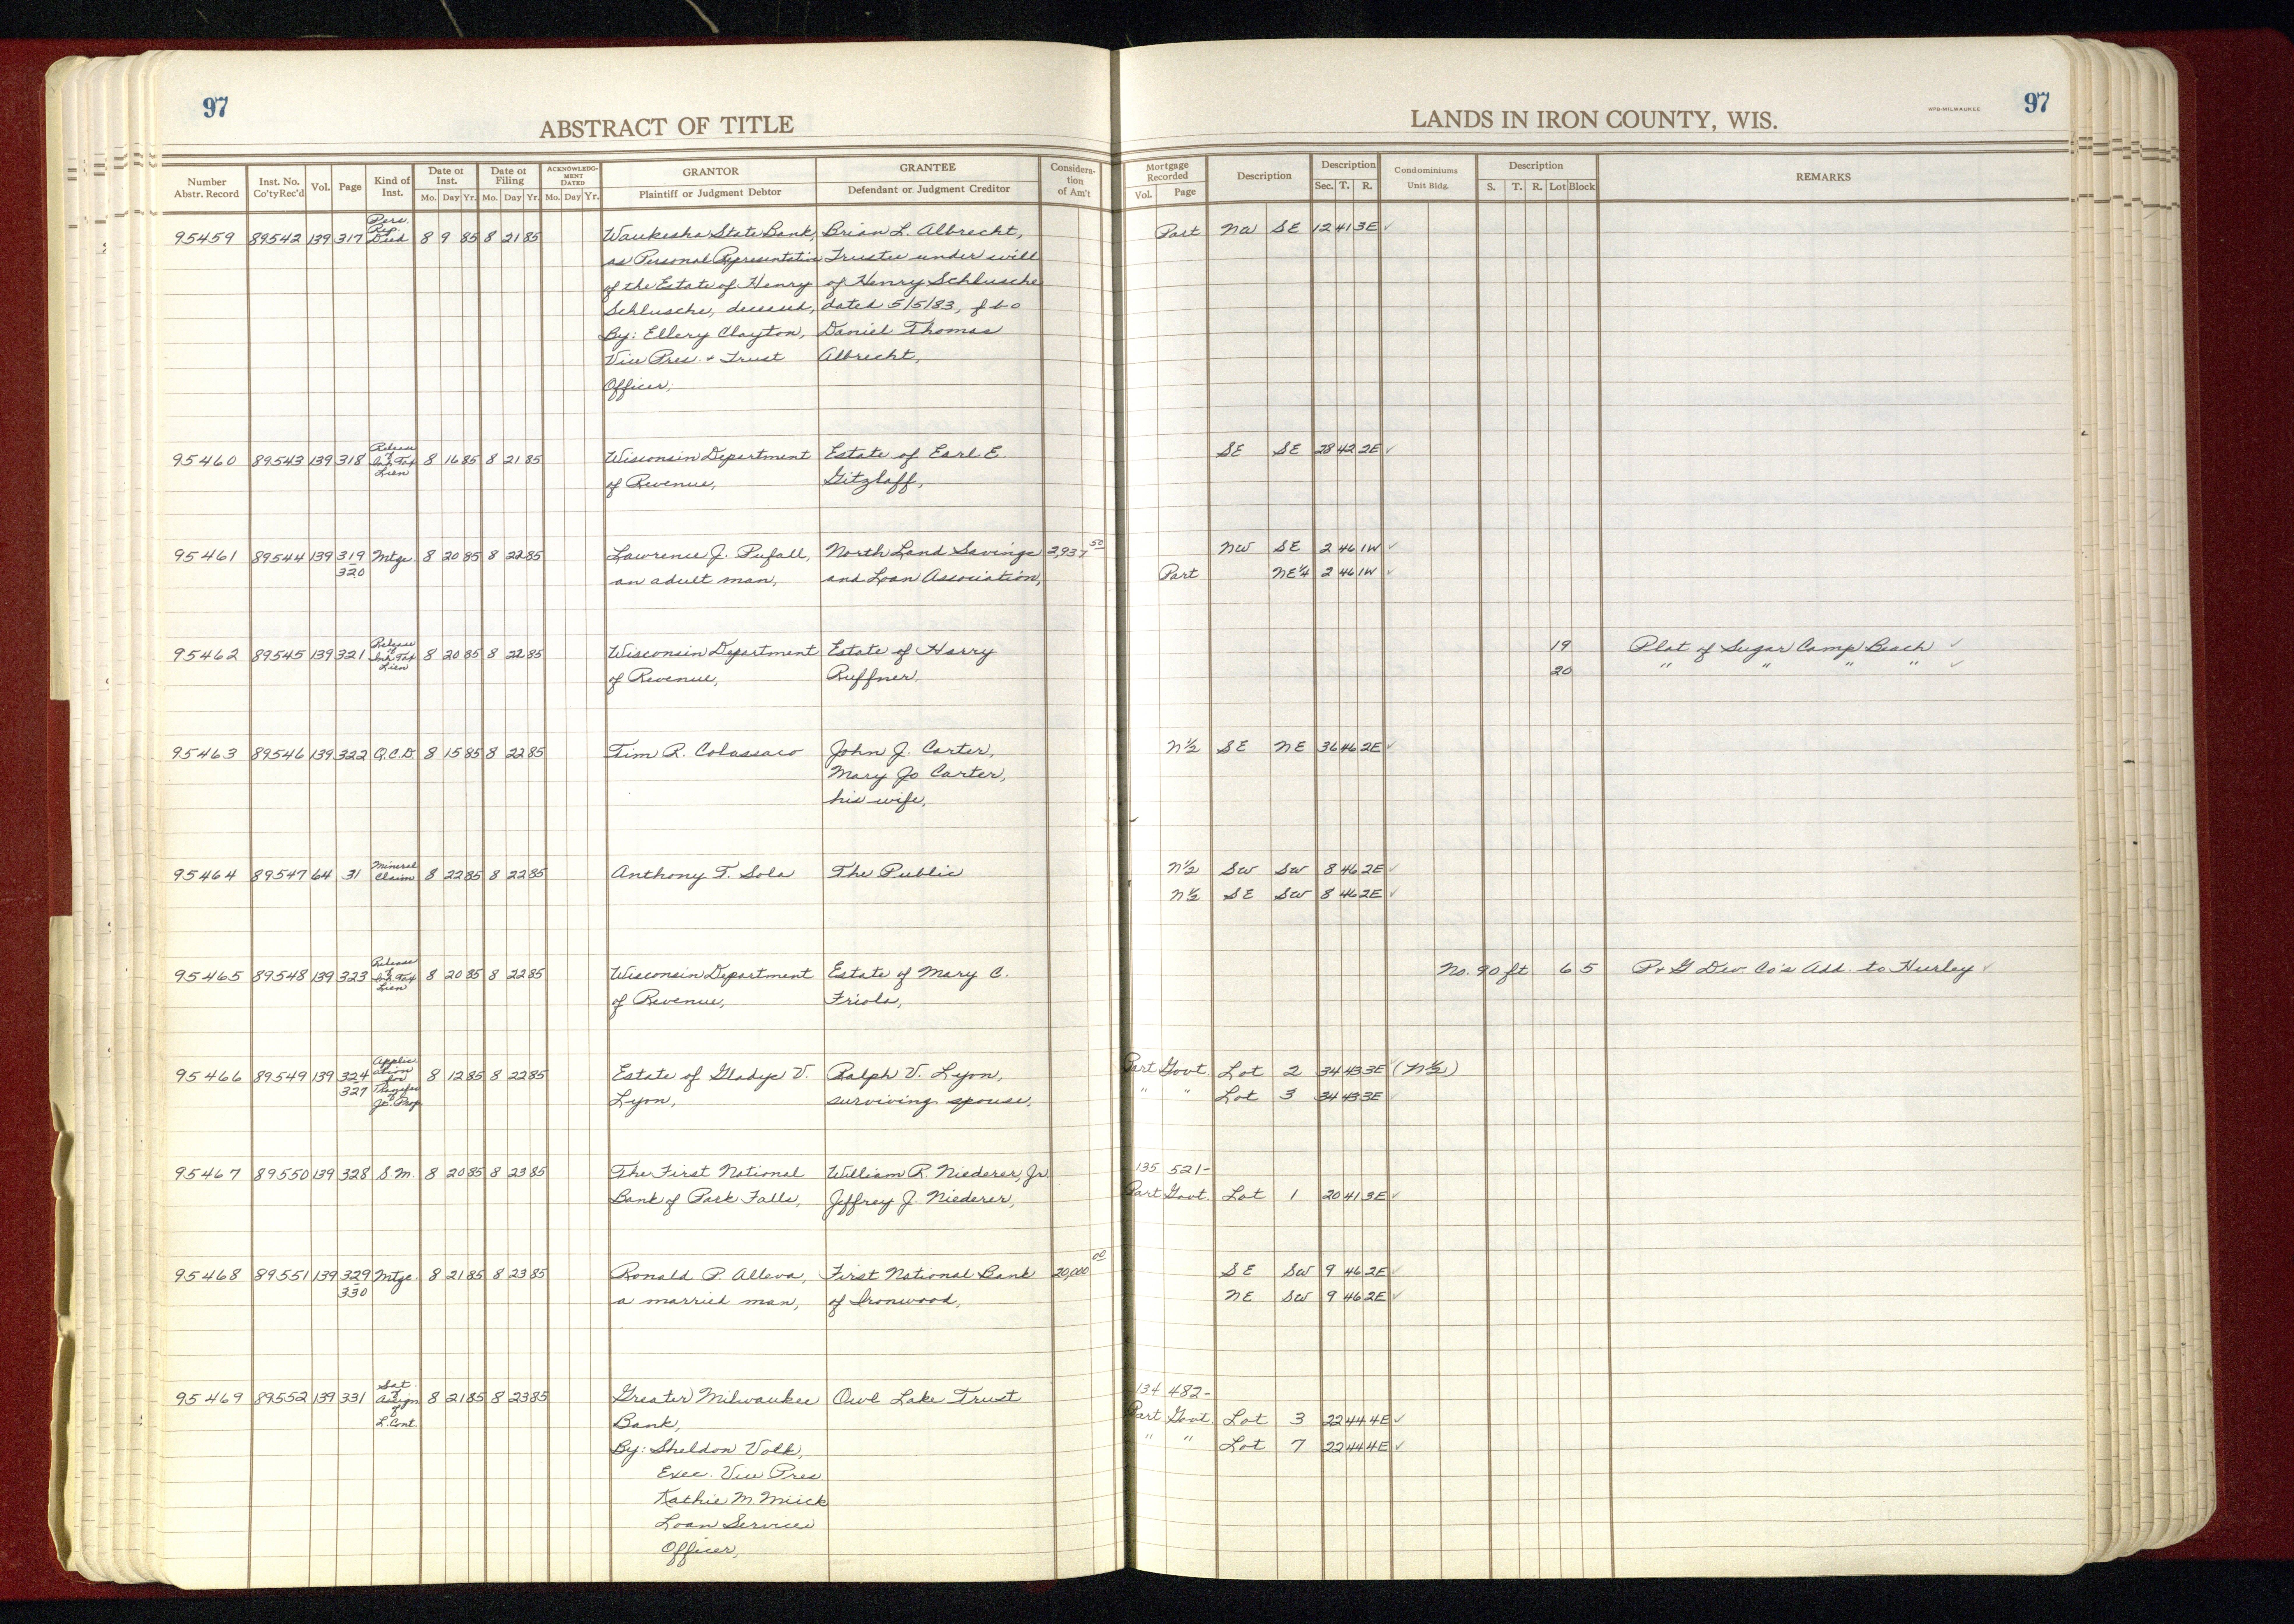 97
ABSTRACT OF TITLE
LANDS IN IRON COUNTY, WIS.
WPB-MILWAUKEE
97
Number Abstr. Record
Inst. No. Co'ty Rec'd
Vol.
Page
Kind of Inst.
Date of Inst. Mo. Day Yr.
Date of Filing Mo. Day Yr.
ACKNOWLEDGMENT DATED Mo. Day Yr.
GRANTOR
Plaintiff or Judgment Debtor
GRANTEE
Defendant or Judgment Creditor
Consideration of Am't
Mortgage Recorded Vol. Page
Description
Description Sec. T. R.
Condominiums Unit Bldg.
Description S. T. R. Lot Block
REMARKS
95459 89542 139 317 Pers. Rep. Deed 8 9 85 8 21 85 Waukesha State Bank, Brian L. Albrecht, Part SE 12 41 3E ✓
as Personal Representative Trustee under will
of the Estate of Henry of Henry Schlusche
Schlusche, deceased, dated 5/5/83, fbo
By: Ellery Clayton, Daniel Thomas
Vice Pres. + Trust Albrecht,
Officer,
95460 89543 139 318 Release of Inh. Tax Lien 8 16 85 8 21 85 Wisconsin Department Estate of Earl E. SE SE 28 42 2E ✓
of Revenue, Gitzlaff,
95461 89544 139 319 Mtge 8 20 85 8 22 85 Lawrence J. Pufall, North Land Savings 2,937 50 NW SE 2 46 1W ✓
320 an adult man, and Loan Association, Part NE¼ 2 46 1W ✓
95462 89545 139 321 Release of Inh. Tax Lien 8 20 85 8 22 85 Wisconsin Department Estate of Harry 19 Plat of Sugar Camp Beach ✓
of Revenue, Ruffner. 20 " " " " ✓
95463 89546 139 322 Q.C.D. 8 15 85 8 22 85 Tim R. Colassaco John J. Carter, N½ SE NE 36 46 2E ✓
Mary Jo Carter,
his wife,
95464 89547 64 31 Mineral Claim 8 22 85 8 22 85 Anthony T. Sola The Public N½ SW SW 8 46 2E ✓
N½ SE SW 8 46 2E ✓
95465 89548 139 323 Release of Inh. Tax Lien 8 20 85 8 22 85 Wisconsin Department Estate of Mary C. No. 90 ft 6 5 P & G Dev. Co's Add. to Hurley ✓
of Revenue, Friola,
95466 89549 139 324 Application for Transfer of Jt. Prop 8 12 85 8 22 85 Estate of Gladys V. Ralph V. Lyon, Part Govt. Lot 2 34 43 3E ✓ (N½)
327 Lyon, surviving spouse, " " Lot 3 34 43 3E ✓
95467 89550 139 328 S.M. 8 20 85 8 23 85 The First National William R. Niederer, Jr. 135 521-
Bank of Park Falls, Jeffrey J. Niederer, Part Govt. Lot 1 20 41 3E ✓
95468 89551 139 329 Mtge. 8 21 85 8 23 85 Ronald P. Alleva, First National Bank 20,000 00 SE SW 9 46 2E ✓
330 a married man, of Ironwood, NE SW 9 46 2E ✓
95469 89552 139 331 Sat. of Assign of L. Cont. 8 21 85 8 23 85 Greater Milwaukee Owl Lake Trust 134 482-
Bank, Part Govt. Lot 3 22 44 4E ✓
By: Sheldon Volk, " " Lot 7 22 44 4E ✓
Exec. Vice Pres
Kathie M. Miick
Loan Service
Officer,